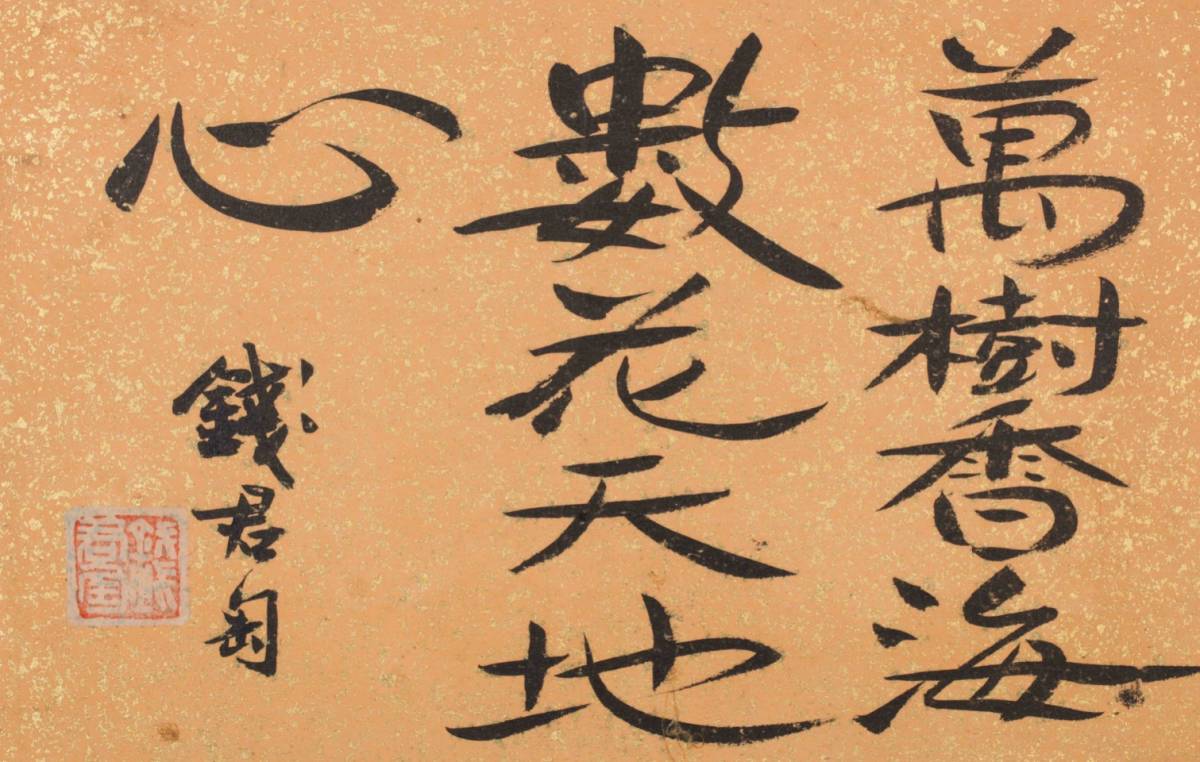 萬樹香海
數花天地
心
錢君匋